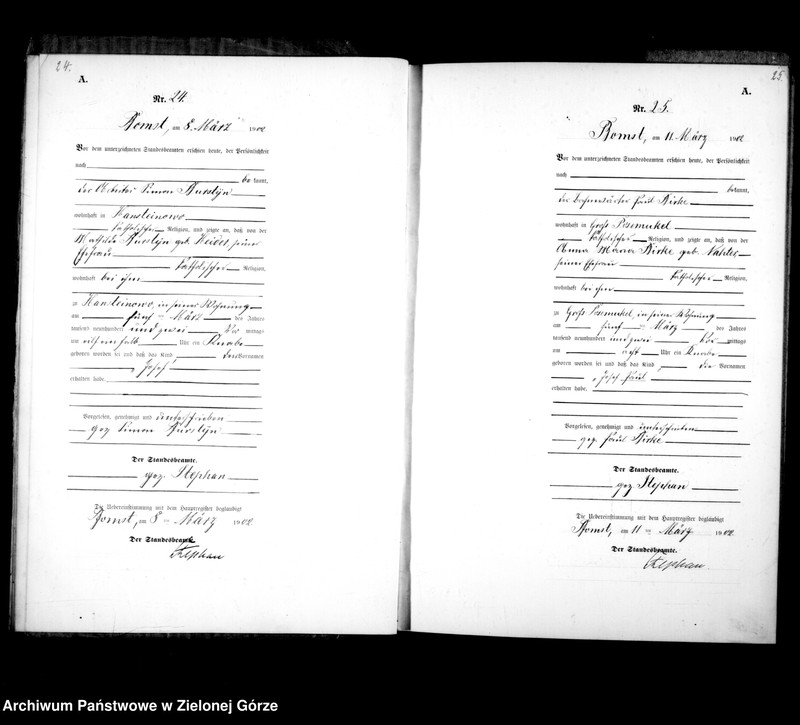 24.
A.
Nr. 24.
Bomst, am 8. März 1902
Vor dem unterzeichneten Standesbeamten erschien heute, der Persönlichkeit
nach
be kannt,
der Arbeiter Simon Burstyn
wohnhaft in Hansteinowo
katholischer Religion, und zeigte an, daß von der
Mathilde Burstyn geb. seiner
Ehefrau
katholischer Religion,
wohnhaft bei ihm
zu Hansteinowo, in seiner Wohnung
am fünf ten März des Jahres
tausend neunhundert und zwei Vor mittags
um elf ein halb Uhr ein Knabe
geboren worden sei und daß das Kind den Vornamen
Josef
erhalten habe.
Vorgelesen, genehmigt und unterschrieben
gez Simon Burstyn
Der Standesbeamte.
gez. Stephan
Die Uebereinstimmung mit dem Hauptregister beglaubigt
Bomst, am 8 ten März 1902
Der Standesbeamte.
Stephan
25.
A.
Nr. 25.
Bomst, am 11. März 1902
Vor dem unterzeichneten Standesbeamten erschien heute, der Persönlichkeit
nach
bekannt,
der Bahnwärter Paul Birke
wohnhaft in Groß Posemukel
katholischer Religion, und zeigte an, daß von der
Anna Maria Birke geb.
seiner Ehefrau
katholischer Religion,
wohnhaft bei ihm
zu Groß Posemukel, in seiner Wohnung
am fünf ten März des Jahres
tausend neunhundert und zwei Vor mittags
um acht Uhr ein Knabe
geboren worden sei und daß das Kind die Vornamen
Josef Paul
erhalten habe.
Vorgelesen, genehmigt und unterschrieben
gez. Paul Birke
Der Standesbeamte.
gez. Stephan
Die Uebereinstimmung mit dem Hauptregister beglaubigt
Bomst, am 11 ten März 1902.
Der Standesbeamte.
Stephan.
Archiwum Państwowe w Zielonej Górze